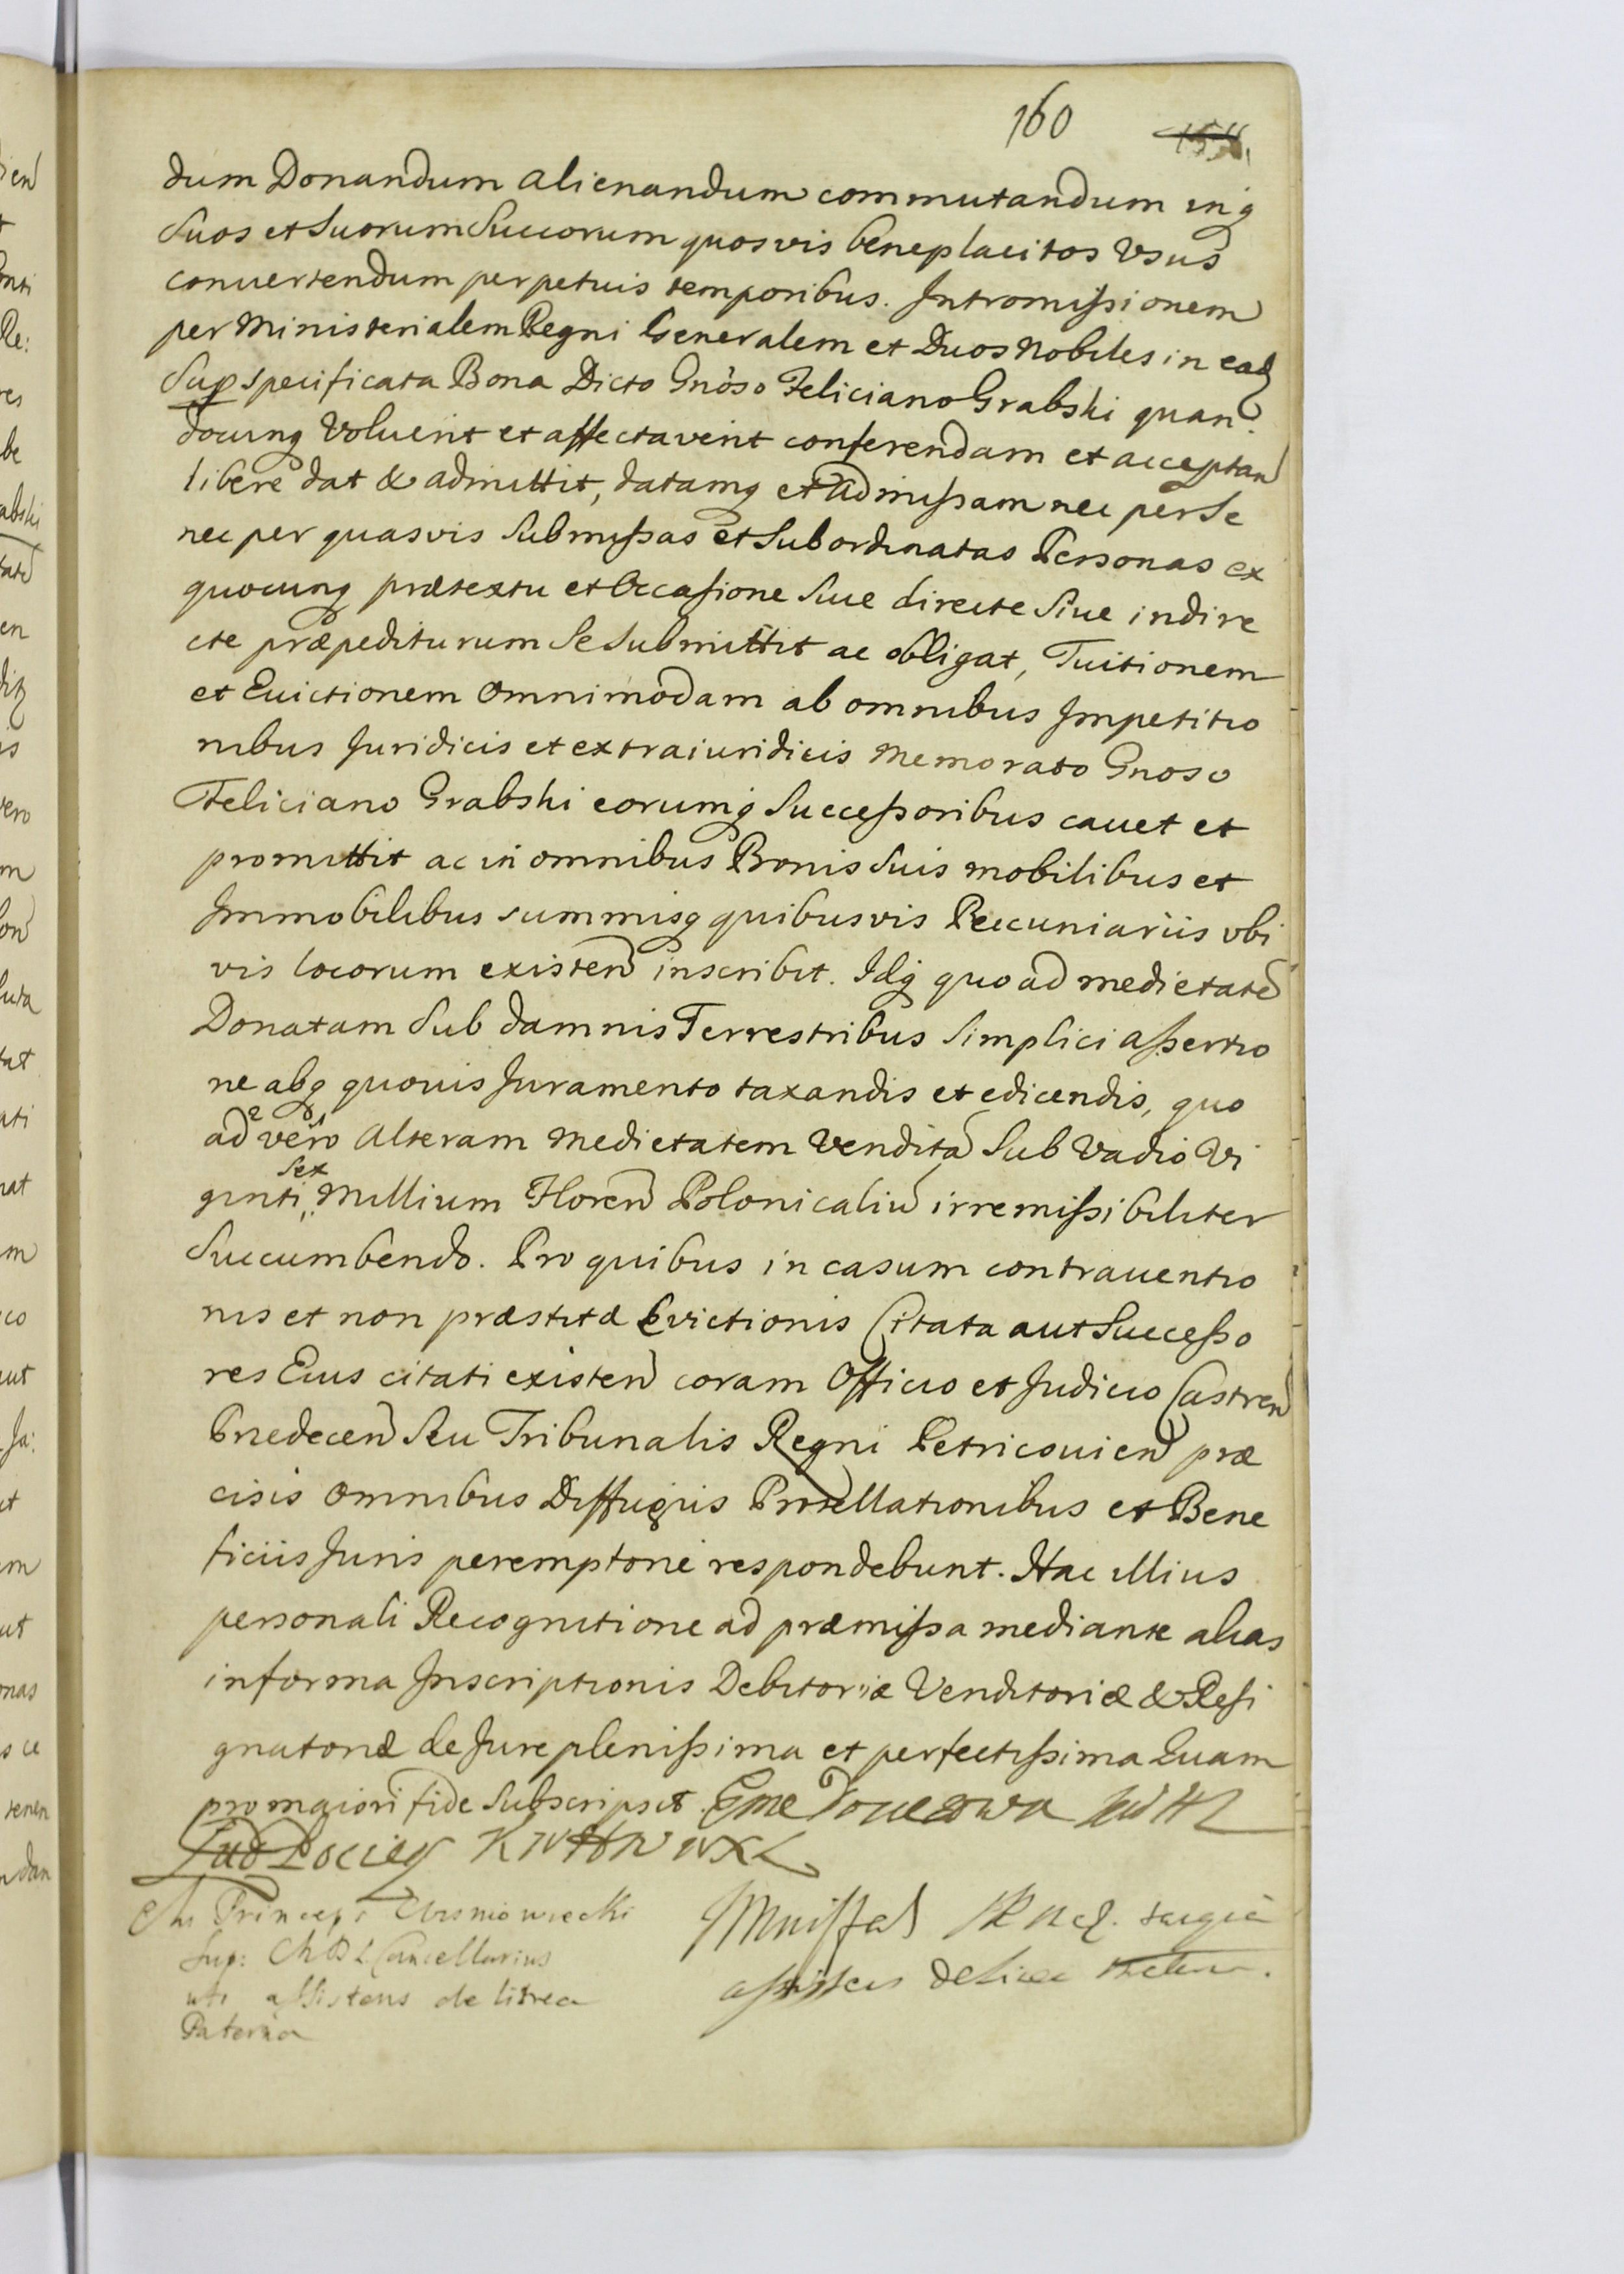 160
dum Donandum alienandum commutandum inq
Suos et Suorum Succorum quosvis beneplacitos Vsus
convertendum perpetuis temporibus. Intromissionem
per Ministerialem Regni Generalem et Duos Nobiles in ead
Sup specificata Bona Dicto Gnoso Feliciano Grabski quan
docunq Voluerit et affectaverit conferendam et acceptan
libere dat & admittit, datamq et admissam nec per Se
nec per quasvis Submissas et Subordinatas Personas ex
quocunq prætextu et Occasione Siue directe Siue indire
cte præpediturum Se Submittit ac obligat, Tuitionem
et Euictionem omnimodam ab omnibus Impetitio
nibus Juridicis et extraiuridicis memorato Gnoso
Feliciano Grabski eorumq Successoribus cauet et
promittit ac in omnibus Bonis Suis mobilibus et
Immobilibus summisq quibusvis Pecuniariis vbi
vis locorum existen inscribit. Idq quo ad medietate
Donatam Sub damnis Terrestribus Simplici assertio
ne absq quouis Juramento taxandis et edicendis, quo
ad vero Alteram Medietatem Vendita Sub Vadio Vi
ginti sex Millium Floren Polonicaliu irremissibiliter
Succumbendo. Pro quibus in casum contrauentio
nis et non præstitæ Evictionis Citata aut Successo
res Eius citati existen coram Officio et Judicio Castren
Brzedecen Seu Tribunalis Regni Petricouien præ
cisis Omnibus Diffugiis et Bene
ficiis Juris peremptorie respondebunt. Hac illius
personali Recognitione ad præmissa mediante alias
in forma Inscriptionis Debitoriæ Venditoriæ & Resi
gnatoriæ de Jure plenissima et perfectissima Quam
pro maiori fide Subscripsit.
Lud Pociey
Princeps Wisniowiecki
Sup: Cancellarius
uti assistens de linea
Paterna
assistens de linea